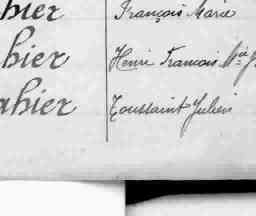 hier François Marie
hier Henri François Mie
ahier Toussaint Julien